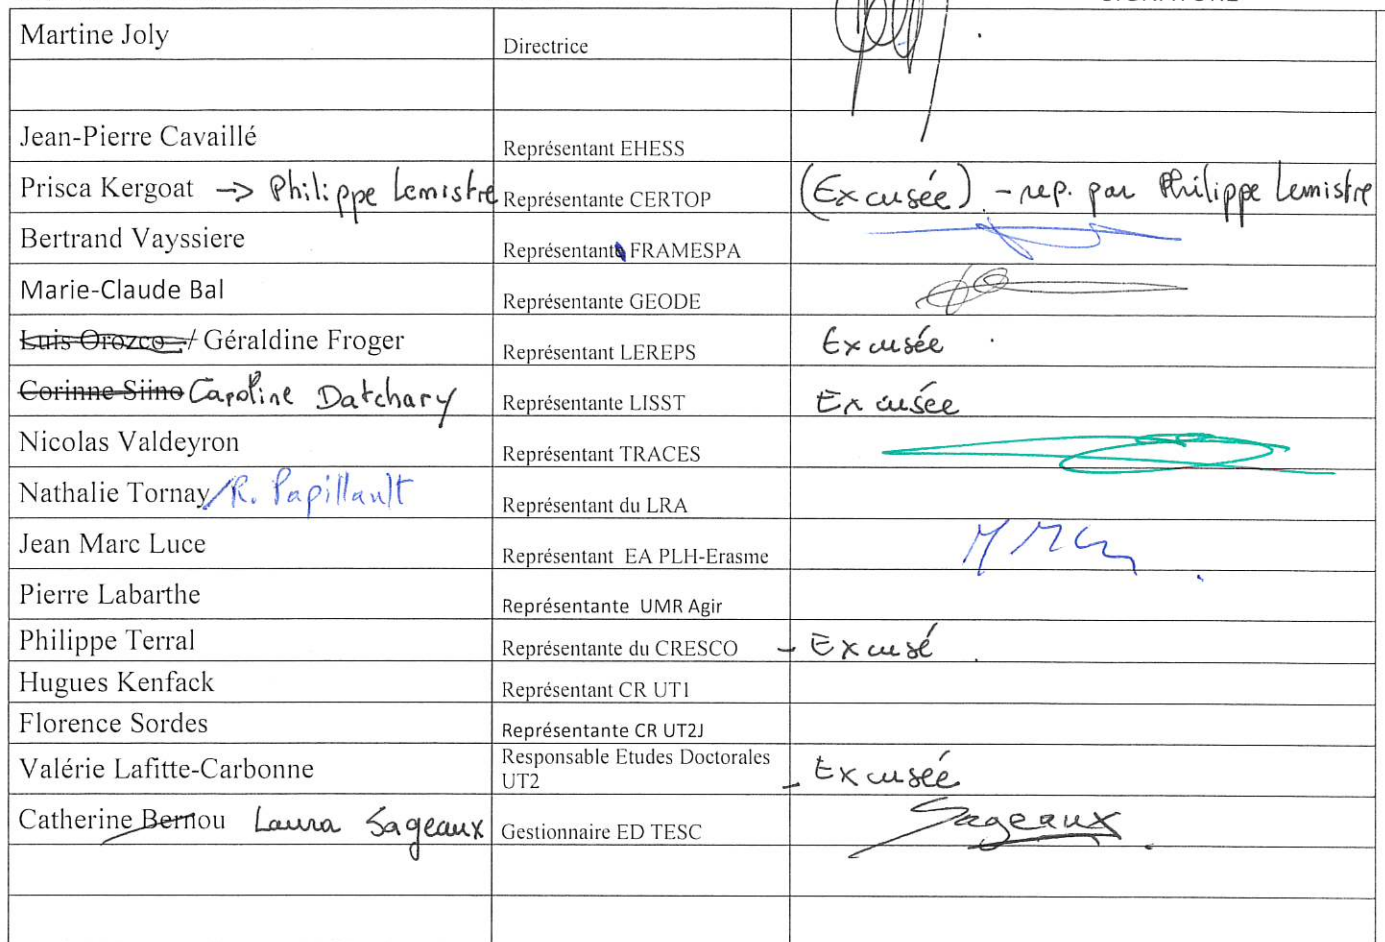 SIGNATURE
Martine Joly Directrice
Jean-Pierre Cavaillé Représentant EHESS
Prisca Kergoat -> Philippe Lemistre Représentante CERTOP (Excusée) - rep. par Philippe Lemistre
Bertrand Vayssiere Représentant FRAMESPA
Marie-Claude Bal Représentante GEODE
Luis Orozco / Géraldine Froger Représentant LEREPS Excusée
Corinne Siino Caroline Datchary Représentante LISST Excusée
Nicolas Valdeyron Représentant TRACES
Nathalie Tornay / R. Papillault Représentant du LRA
Jean Marc Luce Représentant EA PLH-Erasme
Pierre Labarthe Représentante UMR Agir
Philippe Terral Représentante du CRESCO - Excusé
Hugues Kenfack Représentant CR UT1
Florence Sordes Représentante CR UT2J
Valérie Lafitte-Carbonne Responsable Etudes Doctorales
UT2 - Excusée
Catherine Bernou Laura Sageaux Gestionnaire ED TESC Sageaux